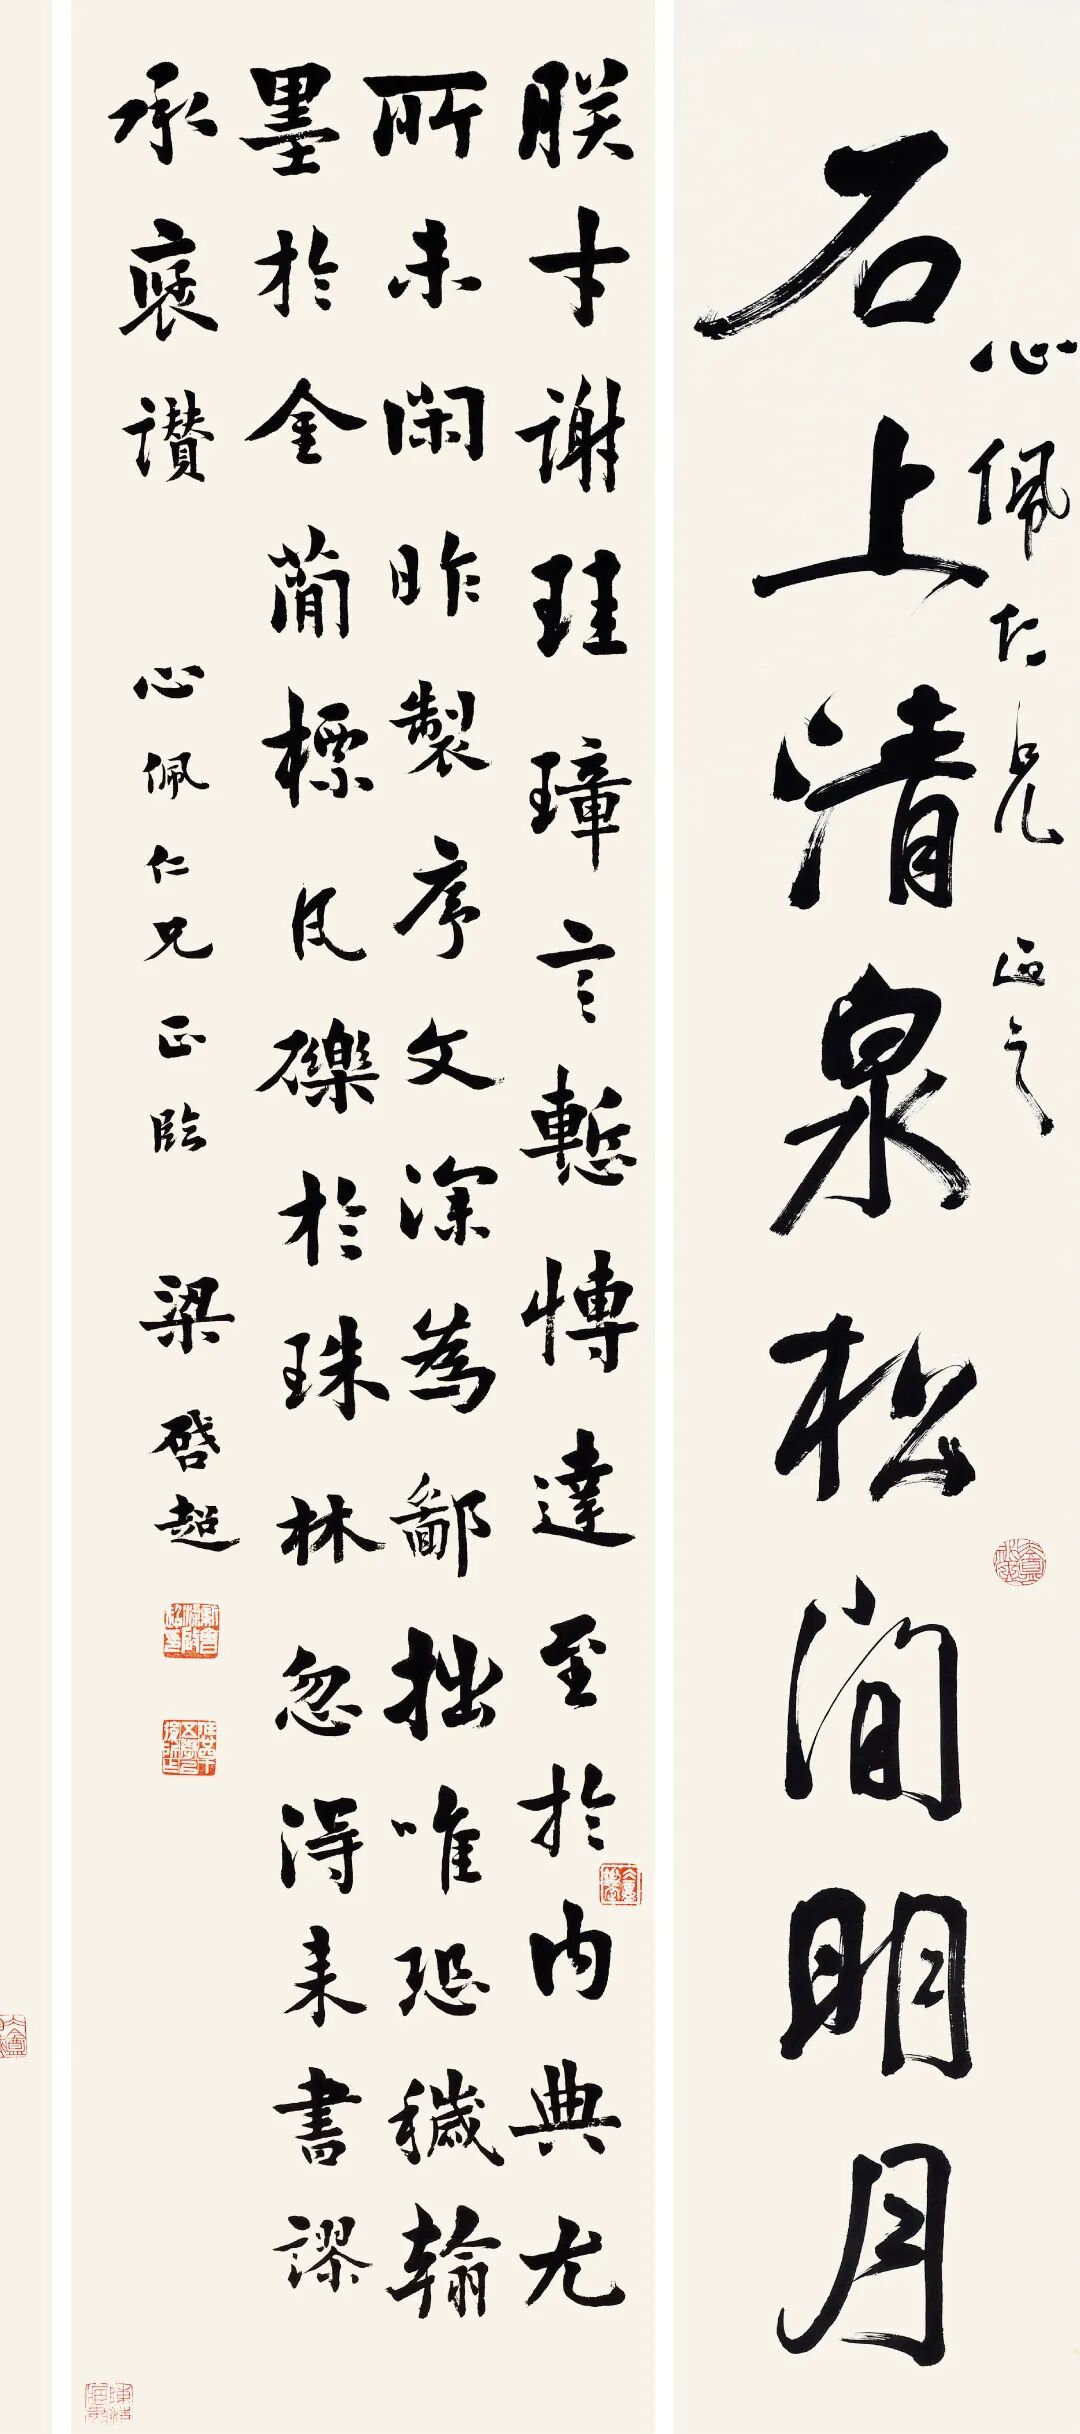 石上清泉松間明月
心佩仁兄正之
朕才謝珪璋言慙博達至於內典尤
所未閑昨製序文深為鄙拙唯恐穢翰
墨於金簡標瓦礫於珠林忽得來書謬
承褒讚
心佩仁兄正臨
梁啓超